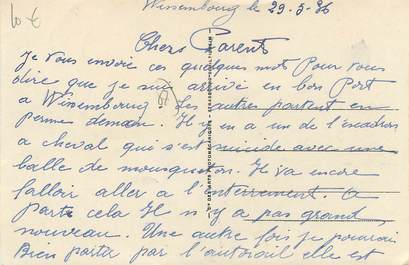 10 €
Wissembourg le 29-5-36
Chers Parents
Je vous envoie ces quelques mot Pour vous
dire que je suis arrivé en bon Port
a Wissembourg. Les autres partent en
perme demain. Il y en a un de l'escadron
a cheval qui s'est suicidé avec une
balle de mousqueton. Il va encore
falloir aller a l'enterrement. A
part cela Il n'y a pas grand
nouveau. Une autre fois je pourrai
Bien partir par l'autorail elle est